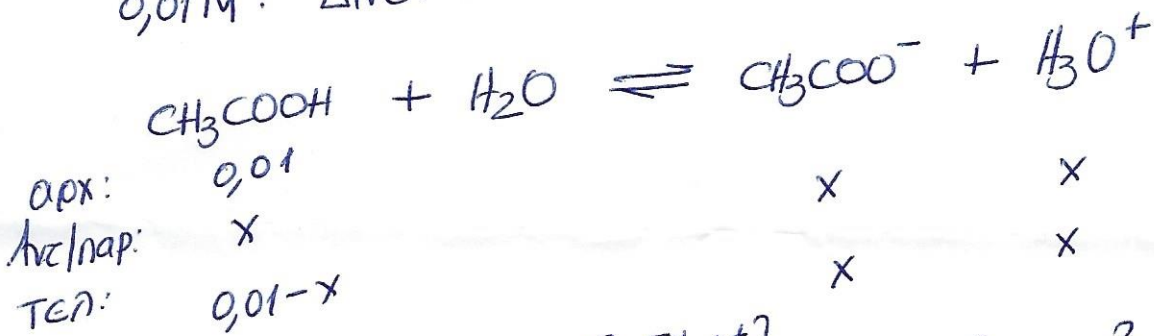 0,01M.
CH₃COOH + H₂O ⇌ CH₃COO⁻ + H₃O⁺
αρχ: 0,01 x x
Αντ/παρ: x x x
τελ: 0,01-x